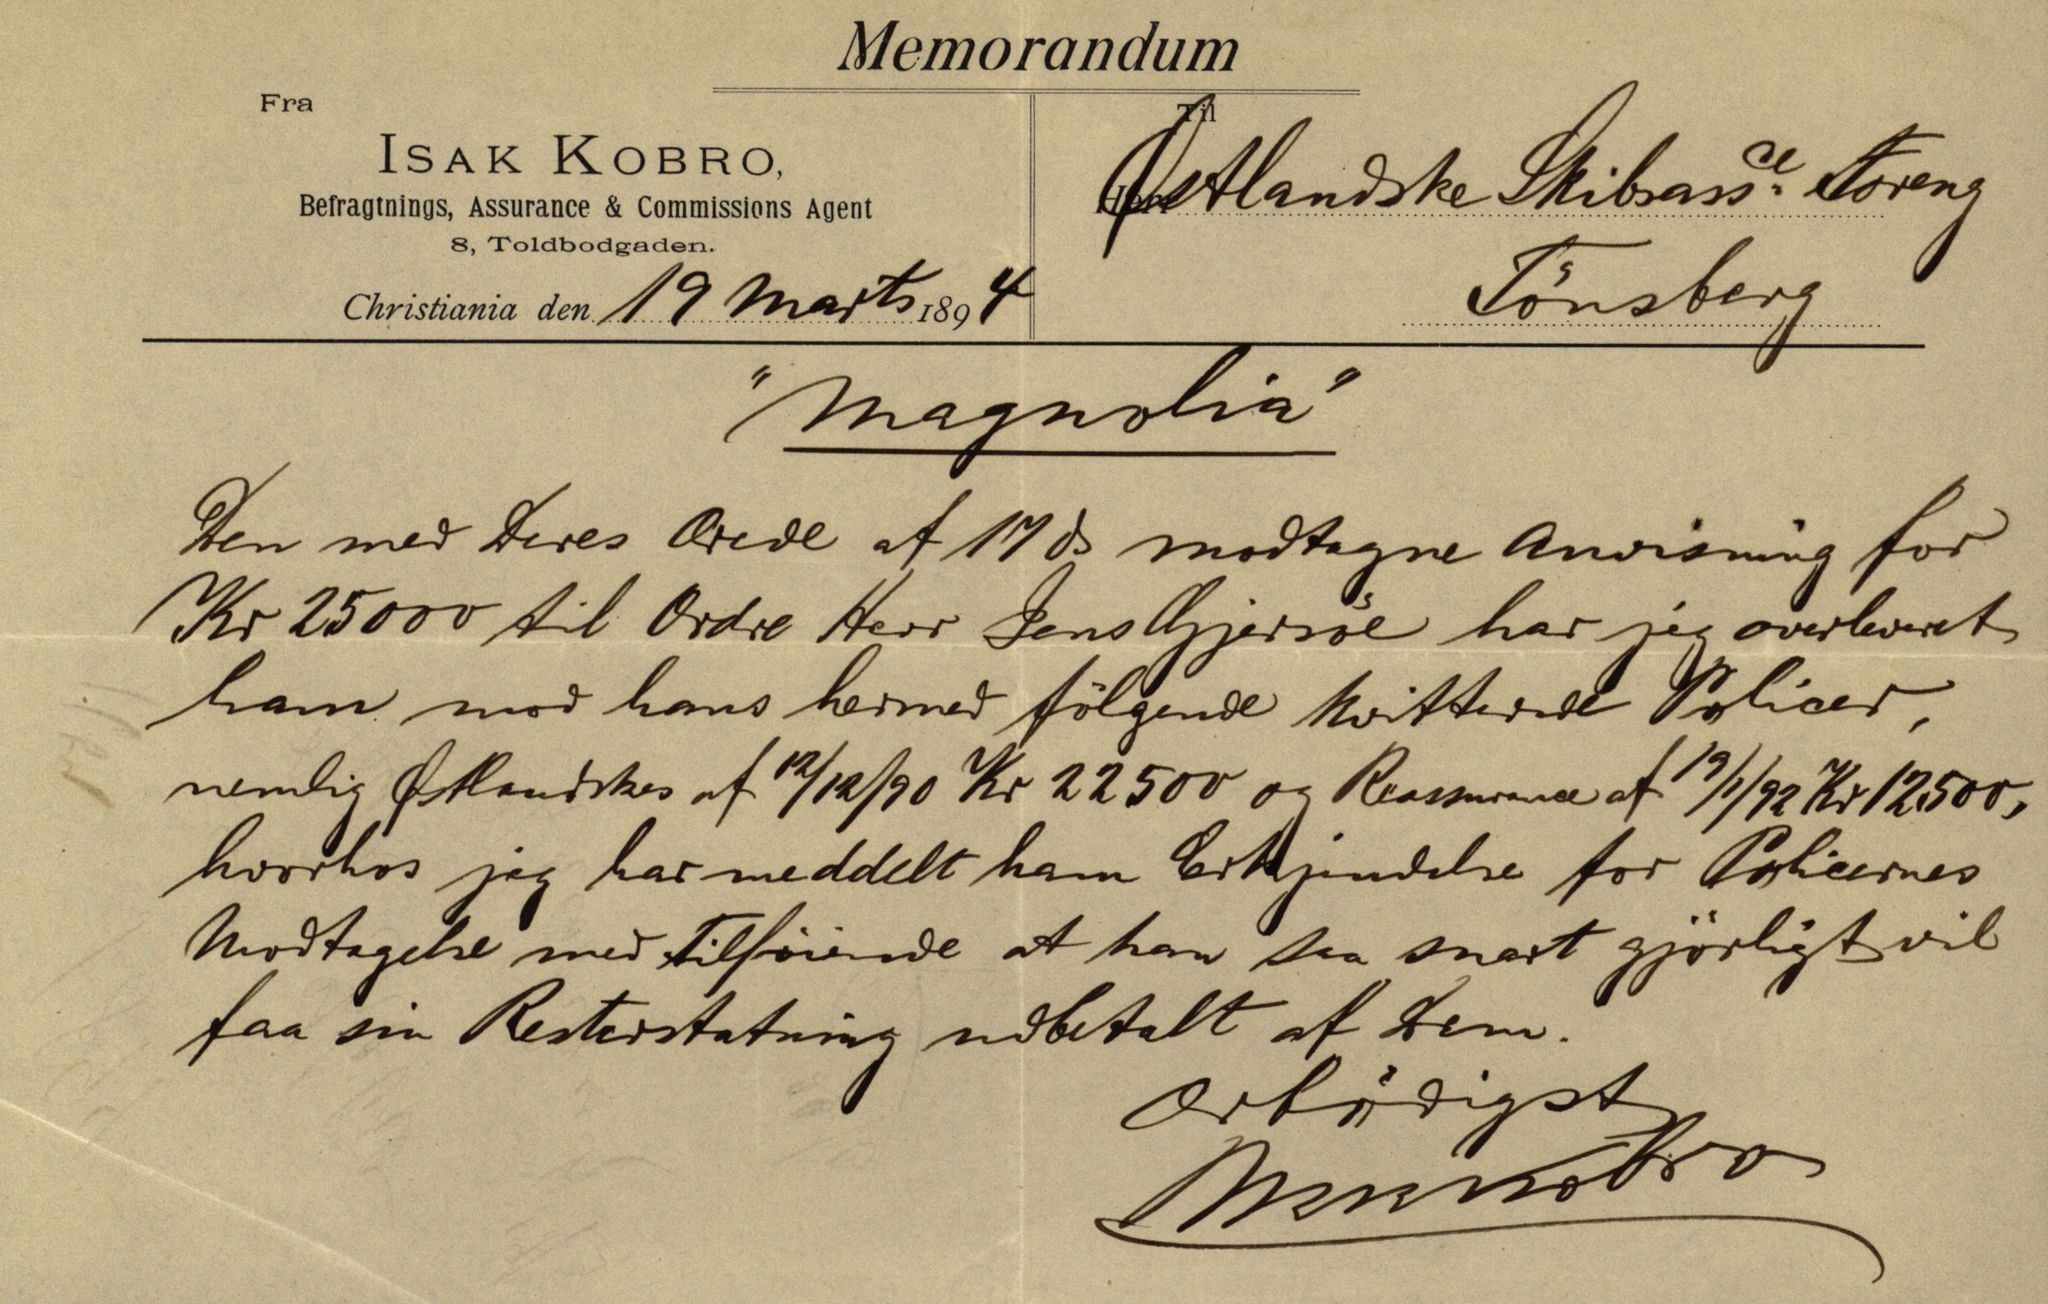 Memorandum
Fra
ISAK KOBRO,
Befragtnings, Assurance & Commissions Agent
8, Toldbodgaden.
Christiania den 19 Marts 1894
Til
Østlandske Skibsassce. Foreng
Tönsberg
"Magnolia"
Den med Deres Ærede af 17 ds modtagne Anvisning for
Kr 25000 til Ordre Herr Jens Gjersöe har jeg overleveret
ham mod hans hermed fölgende kvitterede Policer,
nemlig Østlandskes af 12/12/90 Kr 22500 og Reassurance af 19/1/92 Kr 12500,
hvorhos jeg har meddelt ham Erkjendelse for Policernes
Modtagelse med Tilföiende at han saa snart gjörligt vil
faa sin Resterstatning udbetalt af Dem.
Ærbödigst
Isak Kobro